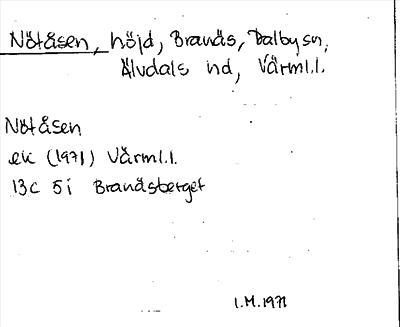 Nötåsen, höjd, Branäs, Dalby sn,
Älvdals hd, Värml.l.
Nötåsen
ek (1971) Värml.l.
13C 5i Branäsberget
1.M.1971